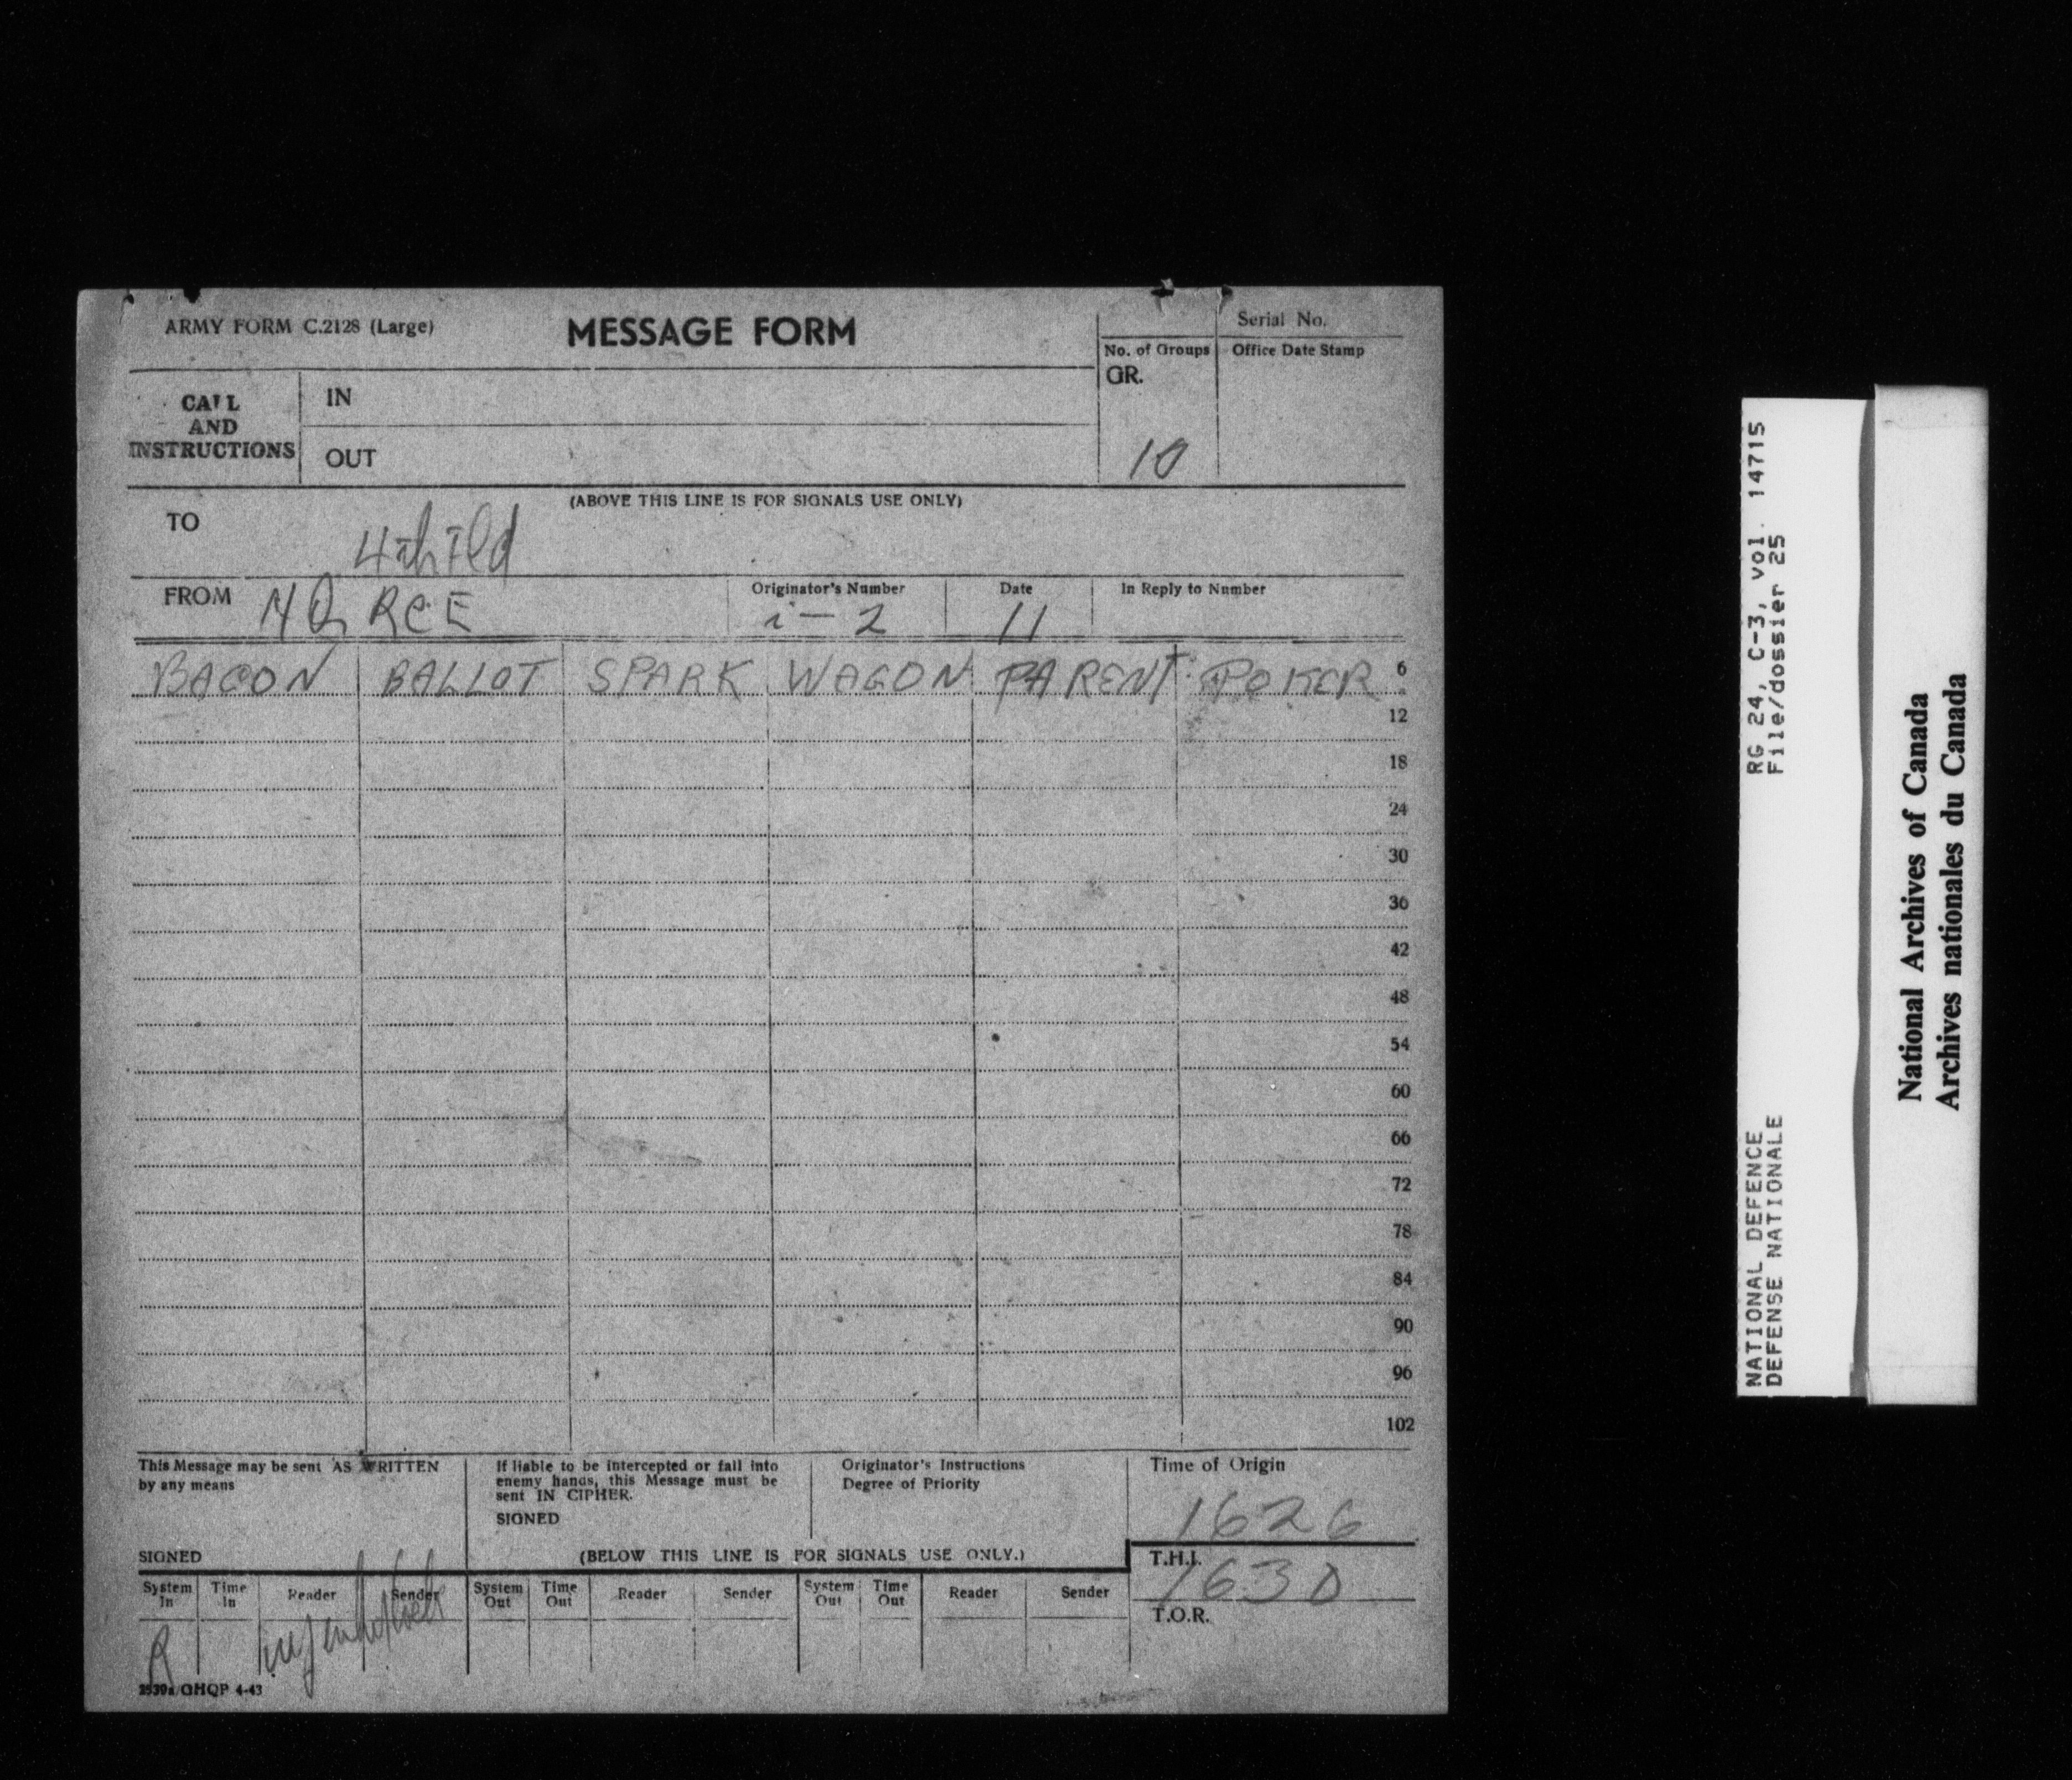 ARMY FORM C.2128 (Large)
MESSAGE FORM
Serial No.
No. of Groups
Office Date Stamp
GR.
10
CALL
AND
INSTRUCTIONS
IN
OUT
(ABOVE THIS LINE IS FOR SIGNALS USE ONLY)
TO
4th Fld
FROM HQ RCE
Originator's Number
i-2
Date
11
In Reply to Number
BACON BALLOT SPARK WAGON PARENT POKER 6
12
18
24
30
36
42
48
54
60
66
72
78
84
90
96
102
This Message may be sent AS WRITTEN
by any means
SIGNED
If liable to be intercepted or fall into
enemy hands, this Message must be
sent IN CIPHER.
SIGNED
Originator's Instructions
Degree of Priority
Time of Origin
1626
(BELOW THIS LINE IS FOR SIGNALS USE ONLY.)
T.H.I.
1630
T.O.R.
System In Time In Reader Sender System Out Time Out Reader Sender System Out Time Out Reader Sender
R
GHQP 4-43
RG 24, C-3, vol. 14715
File/dossier 25
NATIONAL DEFENCE
DEFENSE NATIONALE
National Archives of Canada
Archives nationales du Canada